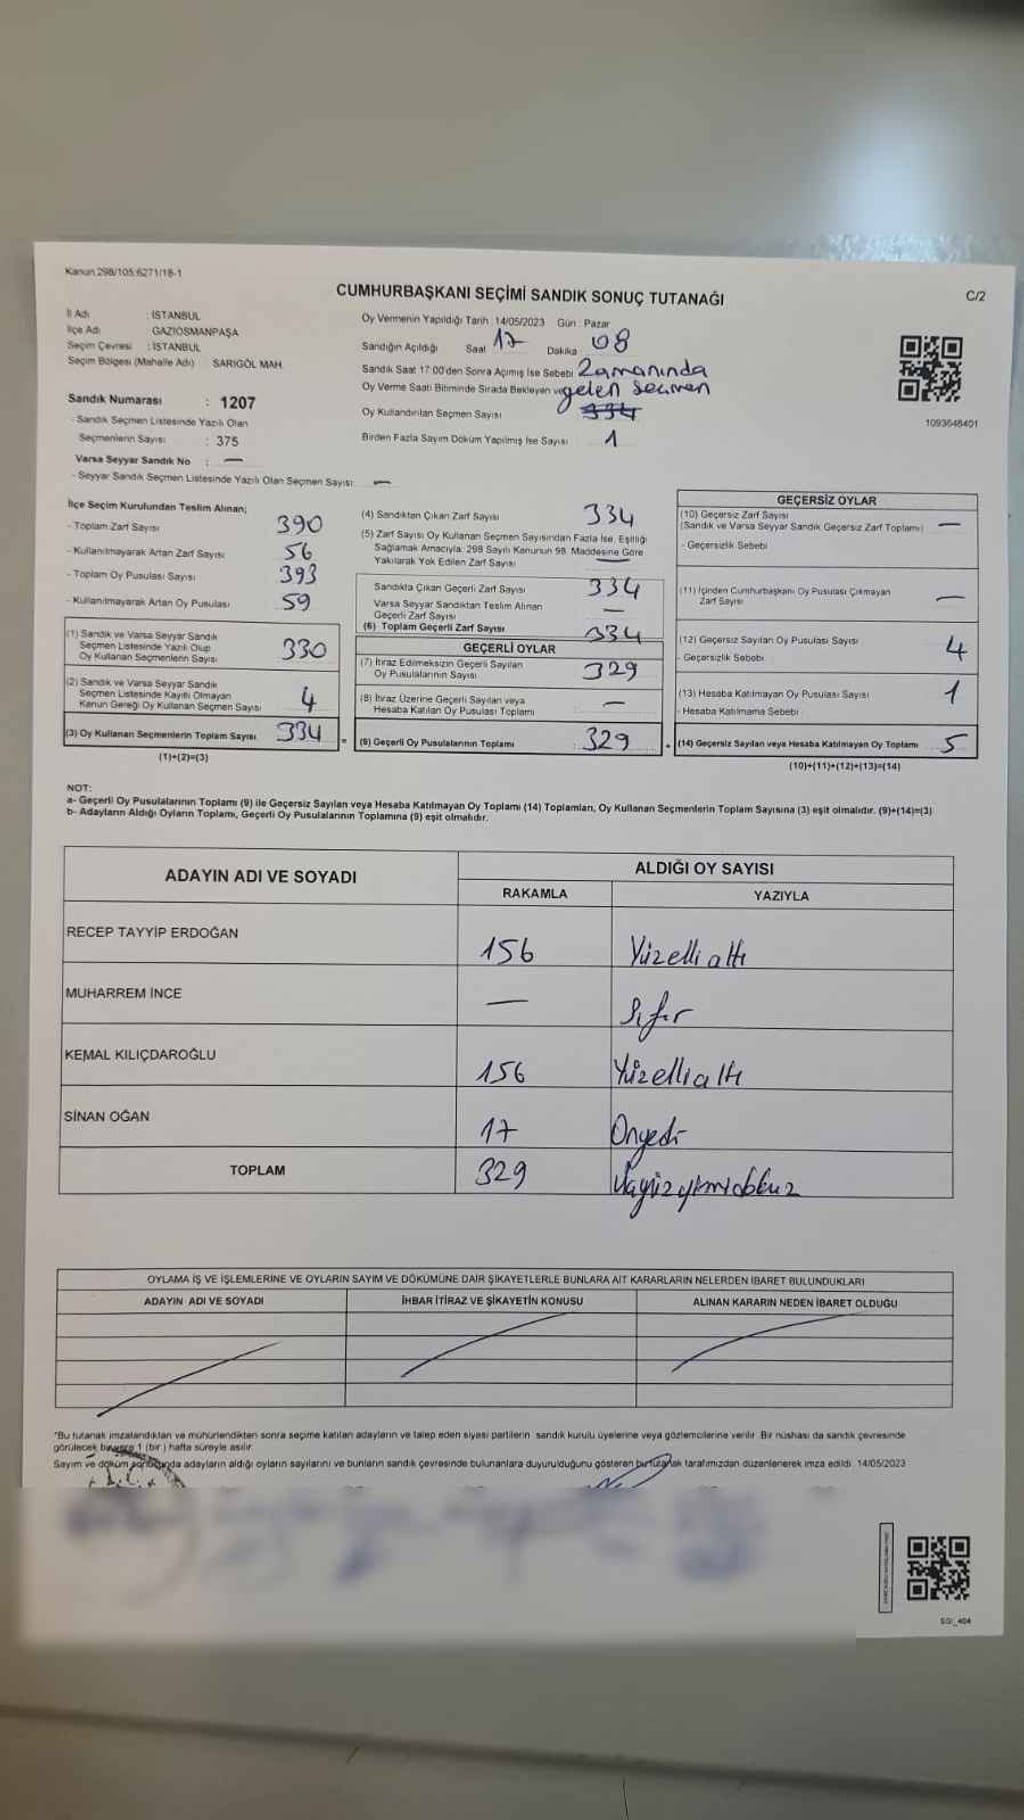 Kanun 298/105:6271/18-1
CUMHURBAŞKANI SEÇİMİ SANDIK SONUÇ TUTANAĞI
C/2
İl Adı : İSTANBUL
İlçe Adı : GAZİOSMANPAŞA
Seçim Çevresi : İSTANBUL
Seçim Bölgesi (Mahalle Adı) SARIGÖL MAH.
Sandık Numarası : 1207
- Sandık Seçmen Listesinde Yazılı Olan
Seçmenlerin Sayısı : 375
Varsa Seyyar Sandık No : —
- Seyyar Sandık Seçmen Listesinde Yazılı Olan Seçmen Sayısı: —
Oy Vermenin Yapıldığı Tarih : 14/05/2023 Gün : Pazar
Sandığın Açıldığı Saat 17 Dakika 08
Sandık Saat 17:00'den Sonra Açımış İse Sebebi Zamanında
Oy Verme Saati Bitiminde Sırada Bekleyen ve gelen seçmen
Oy Kullandırılan Seçmen Sayısı 334
Birden Fazla Sayım Döküm Yapılmış İse Sayısı 1
1093648401
İlçe Seçim Kurulundan Teslim Alınan;
- Toplam Zarf Sayısı 390
- Kullanılmayarak Artan Zarf Sayısı 56
- Toplam Oy Pusulası Sayısı 393
- Kullanılmayarak Artan Oy Pusulası 59
(1) Sandık ve Varsa Seyyar Sandık
Seçmen Listesinde Yazılı Olup
Oy Kullanan Seçmenlerin Sayısı 330
(2) Sandık ve Varsa Seyyar Sandık
Seçmen Listesinde Kayıtlı Olmayan
Kanun Gereği Oy Kullanan Seçmen Sayısı 4
(3) Oy Kullanan Seçmenlerin Toplam Sayısı 334 =
(1)+(2)=(3)
(4) Sandıktan Çıkan Zarf Sayısı 334
(5) Zarf Sayısı Oy Kullanan Seçmen Sayısından Fazla İse, Eşitliği
Sağlamak Amacıyla, 298 Sayılı Kanunun 98. Maddesine Göre
Yakılarak Yok Edilen Zarf Sayısı —
Sandıkta Çıkan Geçerli Zarf Sayısı 334
Varsa Seyyar Sandıktan Teslim Alınan
Geçerli Zarf Sayısı —
(6) Toplam Geçerli Zarf Sayısı 334
GEÇERLİ OYLAR
(7) İtiraz Edilmeksizin Geçerli Sayılan
Oy Pusulalarının Sayısı 329
(8) İtiraz Üzerine Geçerli Sayılan veya
Hesaba Katılan Oy Pusulası Toplamı —
(9) Geçerli Oy Pusulalarının Toplamı : 329 +
GEÇERSİZ OYLAR
(10) Geçersiz Zarf Sayısı
(Sandık ve Varsa Seyyar Sandık Geçersiz Zarf Toplamı) —
- Geçersizlik Sebebi
(11) İçinden Cumhurbaşkanı Oy Pusulası Çıkmayan
Zarf Sayısı —
(12) Geçersiz Sayılan Oy Pusulası Sayısı 4
- Geçersizlik Sebebi
(13) Hesaba Katılmayan Oy Pusulası Sayısı 1
- Hesaba Katılmama Sebebi
(14) Geçersiz Sayılan veya Hesaba Katılmayan Oy Toplamı 5
(10)+(11)+(12)+(13)=(14)
NOT:
a- Geçerli Oy Pusulalarının Toplamı (9) ile Geçersiz Sayılan veya Hesaba Katılmayan Oy Toplamı (14) Toplamları, Oy Kullanan Seçmenlerin Toplam Sayısına (3) eşit olmalıdır. (9)+(14)=(3)
b- Adayların Aldığı Oyların Toplamı, Geçerli Oy Pusulalarının Toplamına (9) eşit olmalıdır.
ADAYIN ADI VE SOYADI ALDIĞI OY SAYISI
RAKAMLA YAZIYLA
RECEP TAYYİP ERDOĞAN 156 Yüzelli altı
MUHARREM İNCE — Sıfır
KEMAL KILIÇDAROĞLU 156 Yüzelli altı
SİNAN OĞAN 17 Onyedi
TOPLAM 329 Üçyüzyirmidokuz
OYLAMA İŞ VE İŞLEMLERİNE VE OYLARIN SAYIM VE DÖKÜMÜNE DAİR ŞİKAYETLERLE BUNLARA AİT KARARLARIN NELERDEN İBARET BULUNDUKLARI
ADAYIN ADI VE SOYADI İHBAR İTİRAZ VE ŞİKAYETİN KONUSU ALINAN KARARIN NEDEN İBARET OLDUĞU
*Bu tutanak imzalandıktan ve mühürlendikten sonra seçime katılan adayların ve talep eden siyasi partilerin sandık kurulu üyelerine veya gözlemcilerine verilir. Bir nüshası da sandık çevresinde
görülecek bir yere 1 (bir) hafta süreyle asılır.
Sayım ve döküm sonucunda adayların aldığı oyların sayılarını ve bunların sandık çevresinde bulunanlara duyurulduğunu gösteren bu tutanak tarafımızdan düzenlenerek imza edildi. 14/05/2023
SGİ_404